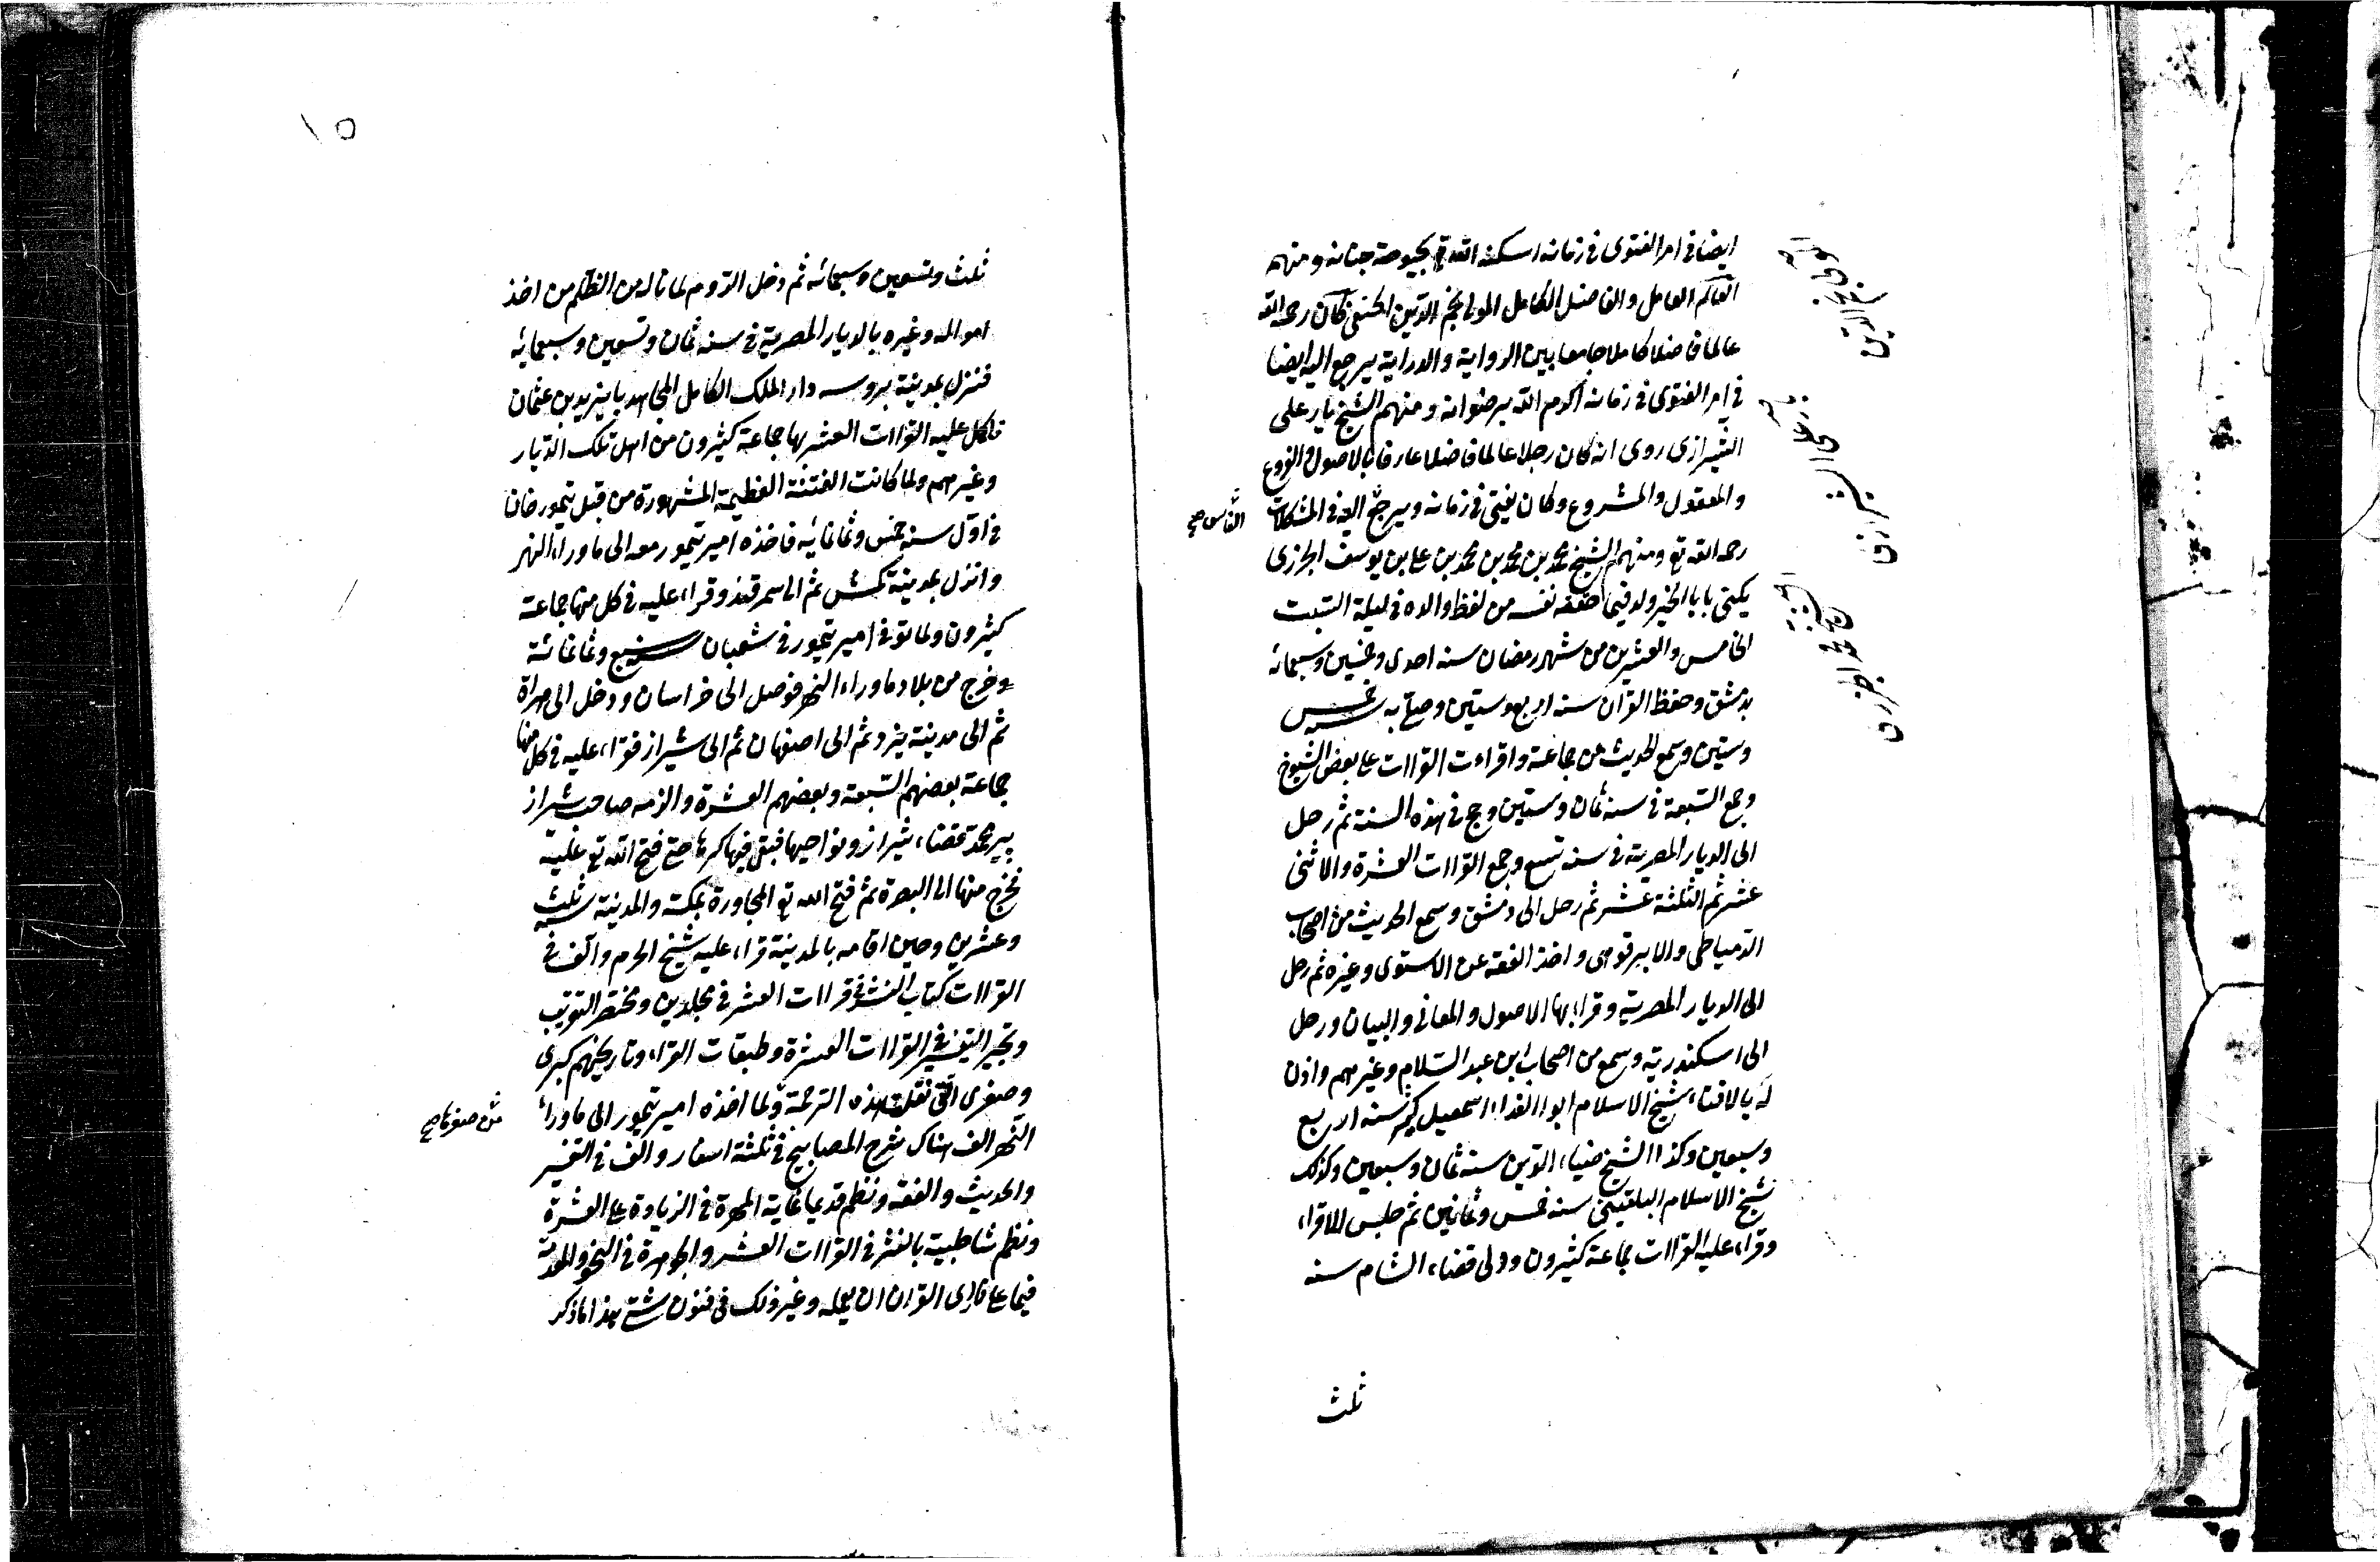 ايضا فى امر الفتوى فى زمانه اسكنه الله فى بحبوحة جنانه ومنهم
العالم العامل والفاضل الكامل المولى نجم الدين الحنفى كان رحمه الله
عالما فاضلا كاملا جامعا بين الرواية والدراية يرجع اليه ايضا
فى امر الفتوى فى زمانه اكرمه الله برضوانه ومنهم الشيخ يار على
الشيرازى روى انه كان رجلا عالما فاضلا عارفا بالاصول والفروع
والمعقول والمشروع وكان يفتى فى زمانه ويرجع اليه فى المشكلات
الناس صح
رحمه الله تع ومنهم الشيخ محمد بن محمد بن محمد بن على بن يوسف الجزرى
يكنى بابا الخير ولد فيما حققه نفسه من لفظ والده فى ليلة السبت
الخامس والعشرين من شهر رمضان سنه احدى وخمسين وسبعمائه
بدمشق وحفظ القرآن سنه اربع وستين وصلى به سنه خمس
وستين وسمع الحديث من جماعة واقراءت القراات على بعض الشيوخ
وجمع السبعة فى سنه ثمان وستين وحج فى هذه السنة ثم رحل
الى الديار المصرية فى سنه تسع وجمع القراات العشرة والاثنى
عشر ثم الثلثة عشر ثم رحل الى دمشق وسمع الحديث من اصحاب
الدمياطى والابرقوهى واخذ الفقه عن الاسنوى وغيره ثم رحل
الى الديار المصرية وقرا بها الاصول والمعانى والبيان ورحل
الى اسكندرية وسمع من اصحاب ابن عبد السلام وغيرهم واذن
له بالافتاء شيخ الاسلام ابو الفداء اسمعيل كثير سنه اربع
وسبعين وكذا الشيخ ضياء الدين سنه ثمان وسبعين وكذلك
شيخ الاسلام البلقينى سنه خمس وثمانين ثم جلس للاقراء
وقراء عليه القراات جماعة كثيرون وولى قضاء الشام سنه
ثلث
١٥
ثلث وتسعين وسبعمائه ثم دخل الروم لما ناله من الظلم من اخذ
امواله وغيره بالديار المصرية فى سنه ثمان وتسعين وسبعمايه
فنزل بمدينة بروسه دار الملك الكامل المجاهد بايزيد بن عثمان
فاكمل عليه القراات العشر بها جماعة كثيرون من اهل تلك الديار
وغيرهم ولما كانت الفتنة العظيمة المشهورة من قبل تيمور خان
فى اول سنه خمس وثمانمايه فاخذه امير تيمور معه الى ماوراء النهر
وانزل بمدينة كش ثم الى سمرقند وقراء عليه فى كل منها جماعة
كثيرون ولما توفى امير تيمور فى شعبان سنه سبع وثمانمائة
وخرج من بلاد ماوراء النهر فوصل الى خراسان ودخل الى هراة
ثم الى مدينة يزد ثم الى اصفهان ثم الى شيراز فقراء عليه فى كل منها
جماعة بعضهم السبعة وبعضهم العشرة والزمه صاحب شيراز
پير محمد قضاء شيراز ونواحيها فبقى فيها كرها حتى فتح الله تع عليه
فخرج منها الى البصرة ثم فتح الله تع المجاورة بمكة والمدينة سنه ثلث
وعشرين وحين اقامه بالمدينة قراء عليه شيخ الحرم والف فى
القراات كتاب النشر فى قراات العشر فى مجلدين ومختصر التقريب
وتحبير التيسير فى القراات العشرة وطبقات القراء وتاريخهم كبرى
وصغرى التى نقلت هذه الترجمة ولما اخذه امير تيمور الى ماوراء
من صغرها صح
النهر الف هناك شرح المصابيح فى ثلثة اسفار والف فى التفسير
والحديث والفقه ونظم قديما غاية المهرة فى الزيادة على العشرة
ونظم شاطبية بالنشر فى القراات العشر والجوهرة فى النحو والمقدمة
فيما على قارى القران ان يعلمه وغير ذلك فى فنون شتى هذا ما ذكر